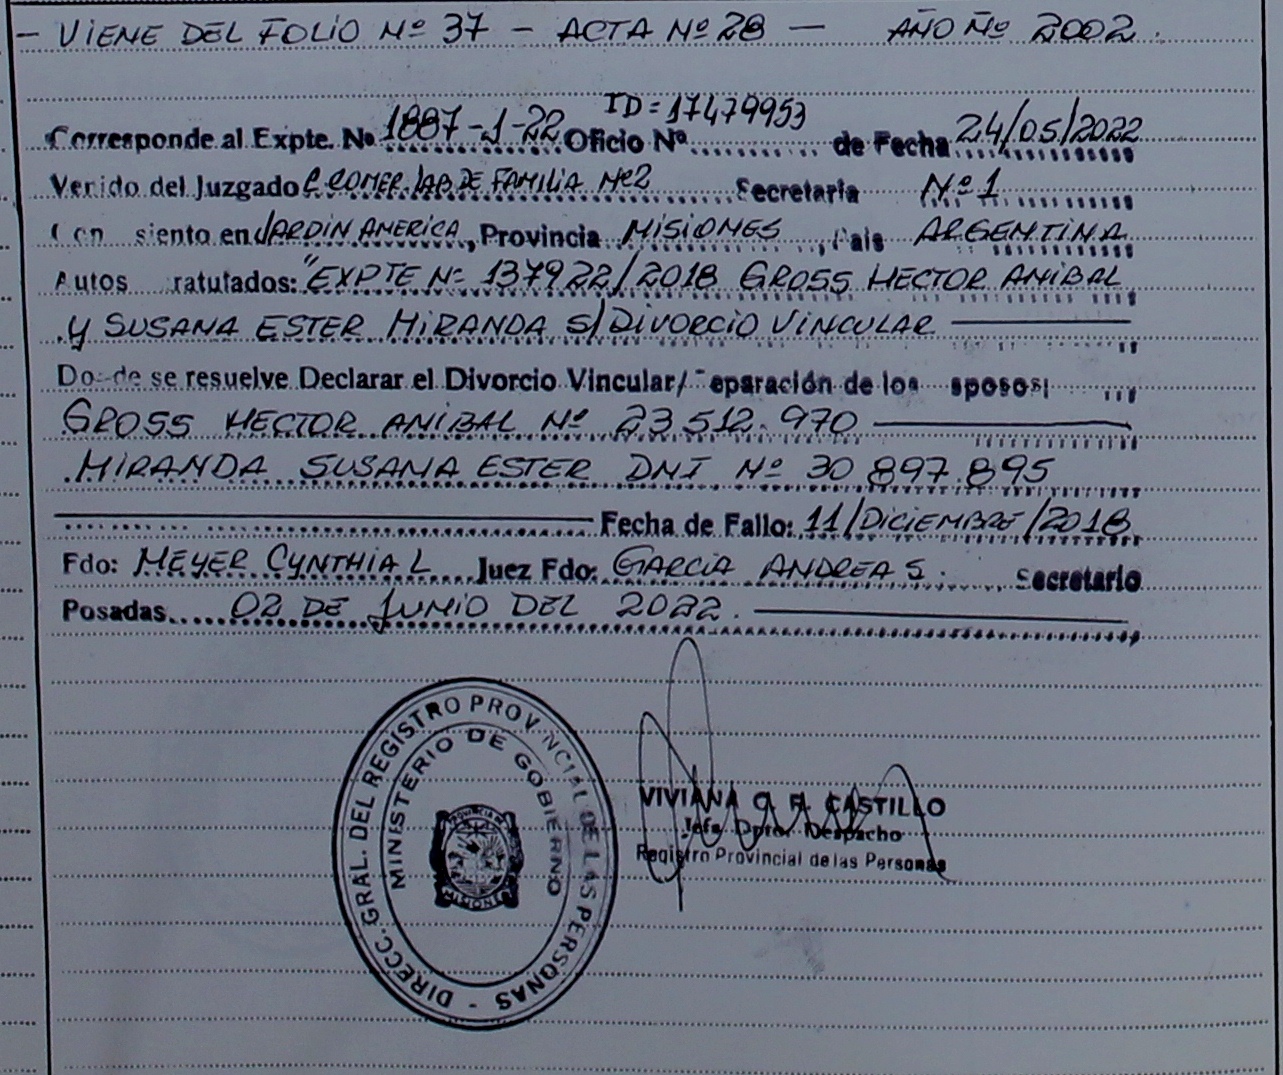 - VIENE DEL FOLIO Nº 37 - ACTA Nº 28 - AÑO Nº 2002.
ID = 17479953
Corresponde al Expte. Nº 1887-1-22 Oficio Nº.......... de Fecha 24/05/2022
Venido del Juzgado C. COMER. LAB. DE FAMILIA Nº2 Secretaria Nº 1
Con siento en JARDIN AMERICA, Provincia MISIONES, Pais ARGENTINA
Autos ratulados: "EXPTE Nº 137922/2018 GROSS HECTOR ANIBAL
Y SUSANA ESTER MIRANDA S/ DIVORCIO VINCULAR
Donde se resuelve Declarar el Divorcio Vincular/ eparación de los sposos:
GROSS HECTOR ANIBAL Nº 23.512.970
MIRANDA SUSANA ESTER DNI Nº 30.897.895
Fecha de Fallo: 11/DICIEMBRE/2018
Fdo: MEYER CYNTHIA L Juez Fdo: GARCIA ANDREA S. Secretario
Posadas 02 DE JUNIO DEL 2022.
DIRECC. GRAL. DEL REGISTRO PROVINCIAL DE LAS PERSONAS -
MINISTERIO DE GOBIERNO
PROVINCIA DE
MISIONES
VIVIANA CASTILLO
Jefa Dpto. Despacho
Registro Provincial de las Personas